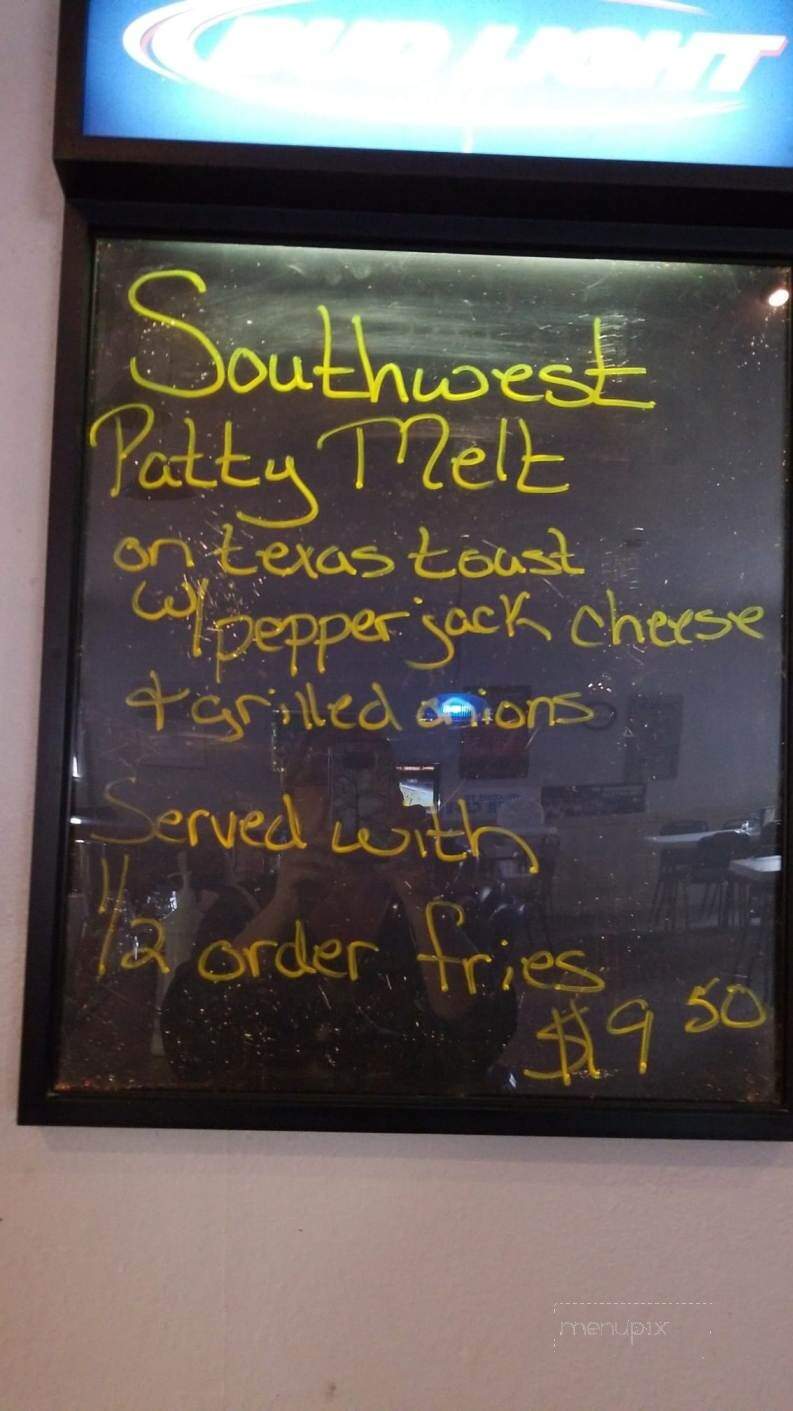 BUD LIGHT
Southwest
Patty Melt
on texas toast
w/ pepper jack cheese
& grilled onions
Served with
1/2 order fries
$9 50
menupix